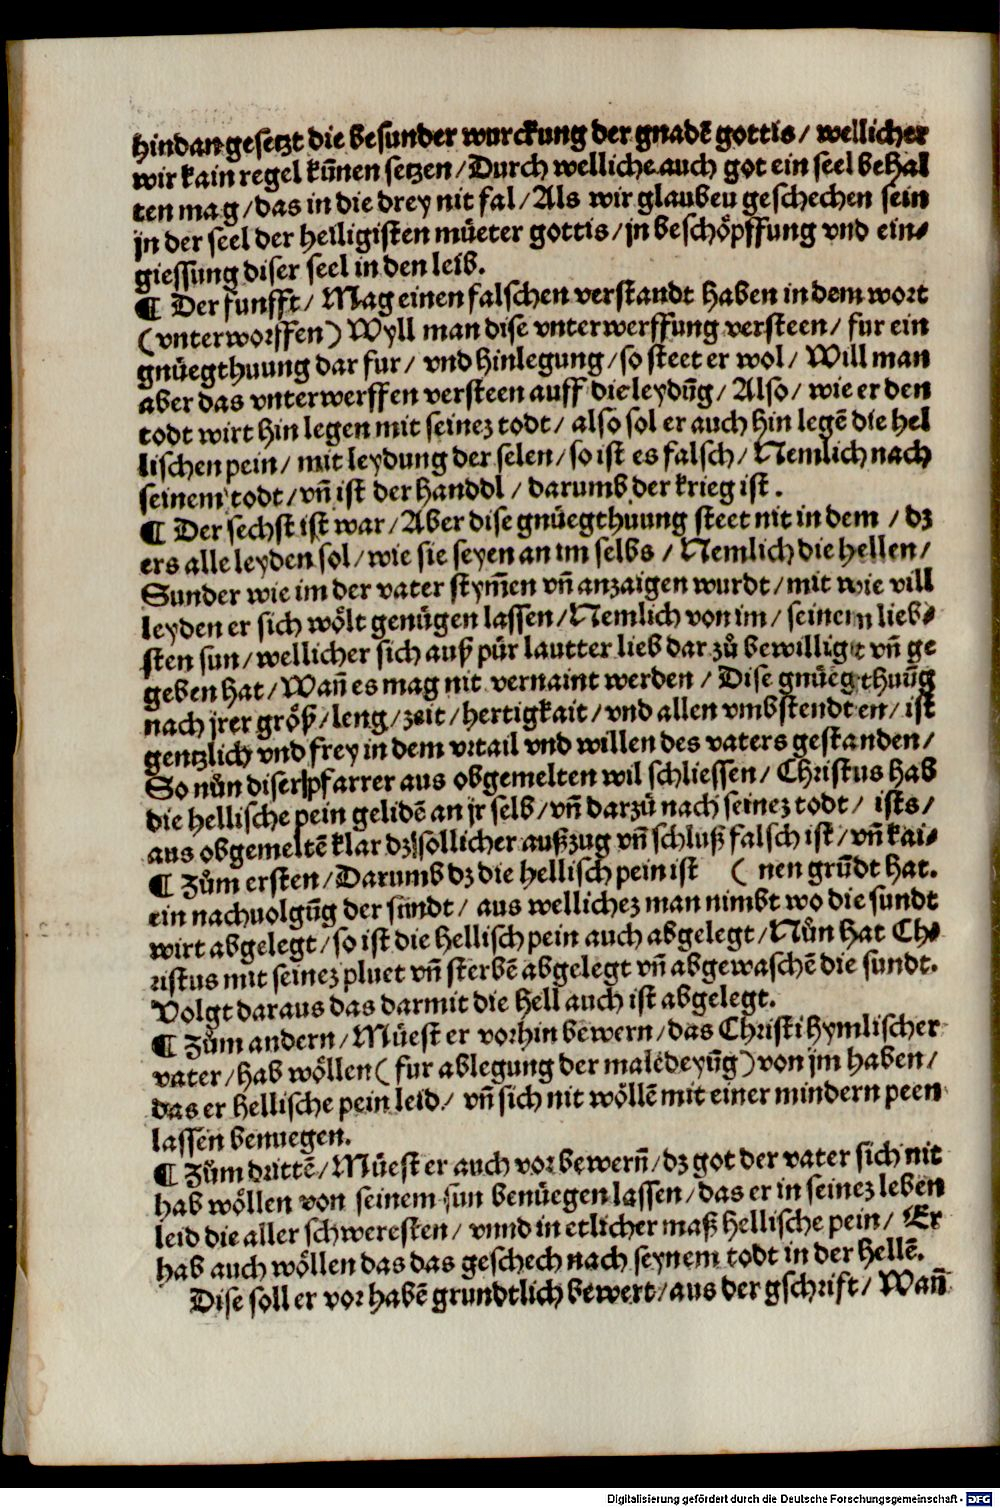 hindangesetzt die besunder wurckung der gnadē gottis / wellicher
wir kain regel kūnen setzen / Durch welliche auch got ein seel behal
ten mag / das in die drey nit fal / Als wir glauben geschechen sein
jn der seel der heiligisten müeter gottis / jn beschöpffung vnd ein⸗
giessung diser seel in den leib.
¶ Der funfft / Mag einen falschen verstandt haben in dem wort
(vnterworffen) Wyll man dise vnterwerffung versteen / fur ein
gnüegthuung dar fur / vnd hinlegung / so steet er wol / Will man
aber das vnterwerffen versteen auff die leydūg / Also / wie er den
todt wirt hin legen mit seinez todt / also sol er auch hin legē die hel
lischen pein / mit leydung der selen / so ist es falsch / Nemlich nach
seinem todt / vñ ist der handdl / darumb der krieg ist.
¶ Der sechst ist war / Aber dise gnüegthuung steet nit in dem / dz
ers alle leyden sol / wie sie seyen an im selbs / Nemlich die hellen /
Sunder wie im der vater stym̄en vñ anzaigen wurdt / mit wie vill
leyden er sich wölt genügen lassen / Nemlich von im / seinem lieb⸗
sten sun / wellicher sich auß pür lautter lieb dar zů bewilligt vñ ge
geben hat / Wañ es mag nit vernaint werden / Dise gnüegthuūg
nach jrer größ / leng / zeit / hertigkait / vnd allen vmbstendten / ist
gentzlich vnd frey in dem vrtail vnd willen des vaters gestanden /
So nůn diser pfarrer aus obgemelten wil schliessen / Christus hab
die hellische pein gelidē an jr selb / vñ darzů nach seinez todt / ists /
aus obgemeltē klar dz sollicher außzug vñ schluß falsch ist / vñ kai⸗
¶ Zům ersten / Darumb dz die hellisch pein ist ( nen grūdt hat.
ein nachuolgūg der sündt / aus wellichez man nimbt wo die sundt
wirt abgelegt / so ist die hellisch pein auch abgelegt / Nůn hat Ch⸗
ristus mit seinez pluet vñ sterbē abgelegt vñ abgewaschē die sundt.
Volgt daraus das darmit die hell auch ist abgelegt.
¶ Zům andern / Müest er vorhin bewern / das Christi hymlischer
vater / hab wöllen ( fur ablegung der maledeyūg ) von jm haben /
das er hellische pein leid / vñ sich nit wöllē mit einer mindern peen
lassen benuegen.
¶ Zům drittē / Müest er auch vor bewerñ / dz got der vater sich nit
hab wöllen von seinem sun benüegen lassen / das er in seinez leben
leid die aller schweresten / vnnd in etlicher maß hellische pein / Er
hab auch wöllen das das geschech nach seynem todt in der hellē.
Dise soll er vor habē grundtlich bewert / aus der gschrift / Wañ
Digitalisierung gefördert durch die Deutsche Forschungsgemeinschaft - DFG